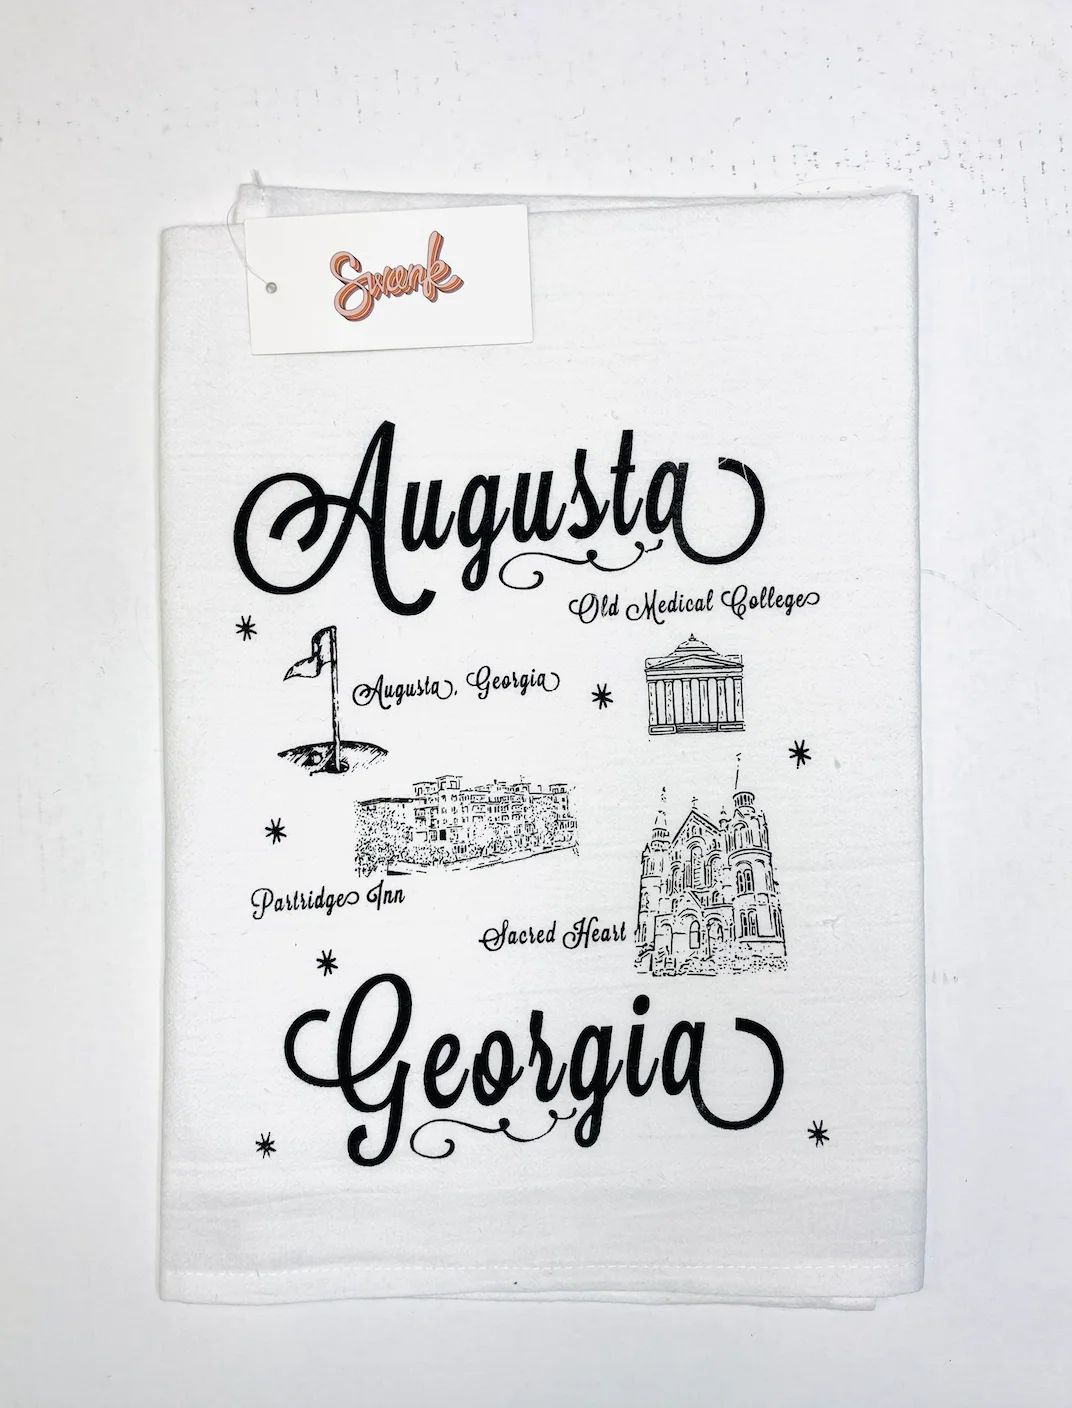 Swank
Augusta
Old Medical College
Augusta, Georgia
Partridge Inn
Sacred Heart
Georgia